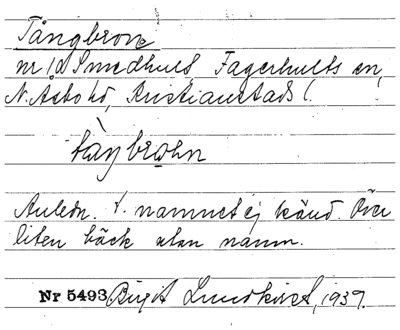 Tångbron
nr 1 Smedhult Fagerhults sn,
N. Åsbo hd, Kristianstads l.
tàŋbrωhn
Anledn. t. namnet ej känd. Över
liten bäck utan namn.
Nr 5493 Birgit Lundkvist, 1937.